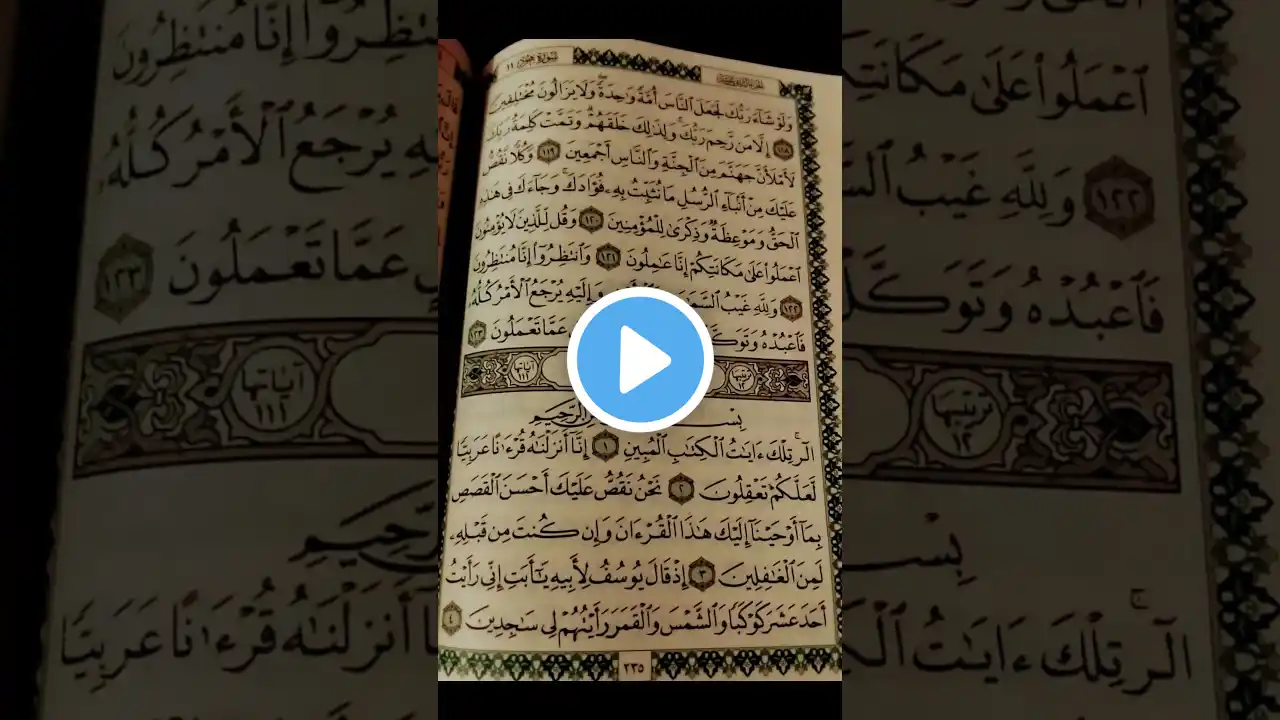 سورة هود ١١
الجزء الثاني عشر
وَلَوْ شَآءَ رَبُّكَ لَجَعَلَ ٱلنَّاسَ أُمَّةً وَٰحِدَةً وَلَا يَزَالُونَ مُخْتَلِفِينَ
١١٨ إِلَّا مَن رَّحِمَ رَبُّكَ وَلِذَٰلِكَ خَلَقَهُمْ وَتَمَّتْ كَلِمَةُ رَبِّكَ
لَأَمْلَأَنَّ جَهَنَّمَ مِنَ ٱلْجِنَّةِ وَٱلنَّاسِ أَجْمَعِينَ ١١٩ وَكُلًّا نَّقُصُّ
عَلَيْكَ مِنْ أَنۢبَآءِ ٱلرُّسُلِ مَا نُثَبِّتُ بِهِۦ فُؤَادَكَ وَجَآءَكَ فِى هَٰذِهِ
ٱلْحَقُّ وَمَوْعِظَةٌ وَذِكْرَىٰ لِلْمُؤْمِنِينَ ١٢٠ وَقُل لِّلَّذِينَ لَا يُؤْمِنُونَ
ٱعْمَلُوا۟ عَلَىٰ مَكَانَتِكُمْ إِنَّا عَٰمِلُونَ ١٢١ وَٱنتَظِرُوٓا۟ إِنَّا مُنتَظِرُونَ
١٢٢ وَلِلَّهِ غَيْبُ وَإِلَيْهِ يُرْجَعُ ٱلْأَمْرُ كُلُّهُۥ
فَٱعْبُدْهُ عَمَّا تَعْمَلُونَ ١٢٣
ترتيبها ١٢
آياتها ١١١
بِسْمِ ٱلرَّحِيمِ
الٓر تِلْكَ ءَايَٰتُ ٱلْكِتَٰبِ ٱلْمُبِينِ ١ إِنَّآ أَنزَلْنَٰهُ قُرْءَٰنًا عَرَبِيًّا
لَّعَلَّكُمْ تَعْقِلُونَ ٢ نَحْنُ نَقُصُّ عَلَيْكَ أَحْسَنَ ٱلْقَصَصِ
بِمَآ أَوْحَيْنَآ إِلَيْكَ هَٰذَا ٱلْقُرْءَانَ وَإِن كُنتَ مِن قَبْلِهِۦ
لَمِنَ ٱلْغَٰفِلِينَ ٣ إِذْ قَالَ يُوسُفُ لِأَبِيهِ يَٰٓأَبَتِ إِنِّى رَأَيْتُ
أَحَدَ عَشَرَ كَوْكَبًا وَٱلشَّمْسَ وَٱلْقَمَرَ رَأَيْتُهُمْ لِى سَٰجِدِينَ ٤
٢٣٥